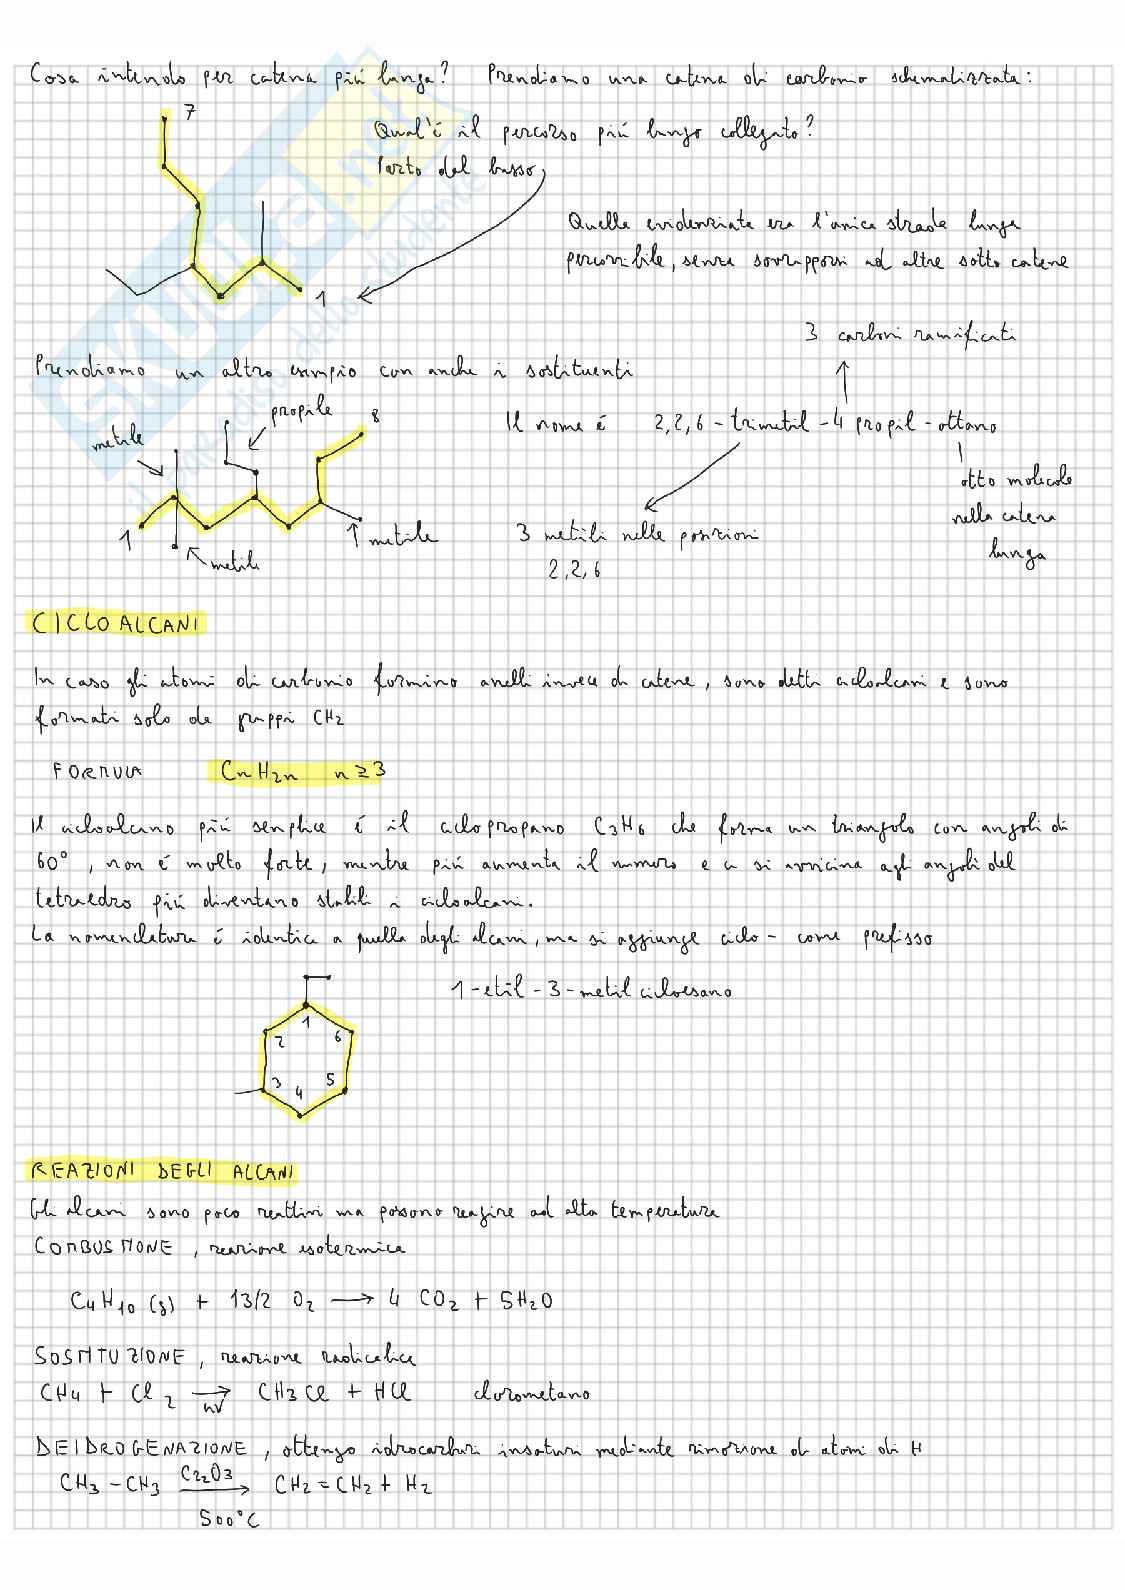 Cosa intendo per catena più lunga? Prendiamo una catena di carbonio schematizzata:
7
Qual'è il percorso più lungo collegato?
Parto dal basso,
Quella evidenziata era l'unica strada lunga
percorribile, senza sovrapporsi ad altre sotto catene
1
3 carboni ramificati
Prendiamo un altro esempio con anche i sostituenti
propile
8
metile
Il nome è 2,2,6-trimetil-4 propil-ottano
otto molecole
nella catena
lunga
1
metile
metile
3 metili nelle posizioni
2,2,6
CICLOALCANI
In caso gli atomi di carbonio formino anelli invece di catene, sono detti cicloalcani e sono
formati solo da gruppi CH2
FORMULA CnH2n n≥3
Il cicloalcano più semplice è il ciclopropano C3H6 che forma un triangolo con angoli di
60°, non è molto forte, mentre più aumenta il numero e ci si avvicina agli angoli del
tetraedro più diventano stabili i cicloalcani.
La nomenclatura è identica a quella degli alcani, ma si aggiunge ciclo- come prefisso
1-etil-3-metilcicloesano
1
2
6
3
5
4
REAZIONI DEGLI ALCANI
Gli alcani sono poco reattivi ma possono reagire ad alta temperatura
COMBUSTIONE, reazione esotermica
C4H10 (g) + 13/2 O2 → 4 CO2 + 5H2O
SOSTITUZIONE, reazione radicalica
CH4 + Cl2 → CH3Cl + HCl clorometano
hν
DEIDROGENAZIONE, ottengo idrocarburi insaturi mediante rimozione di atomi di H
CH3-CH3 Cr2O3→ CH2=CH2 + H2
500°C